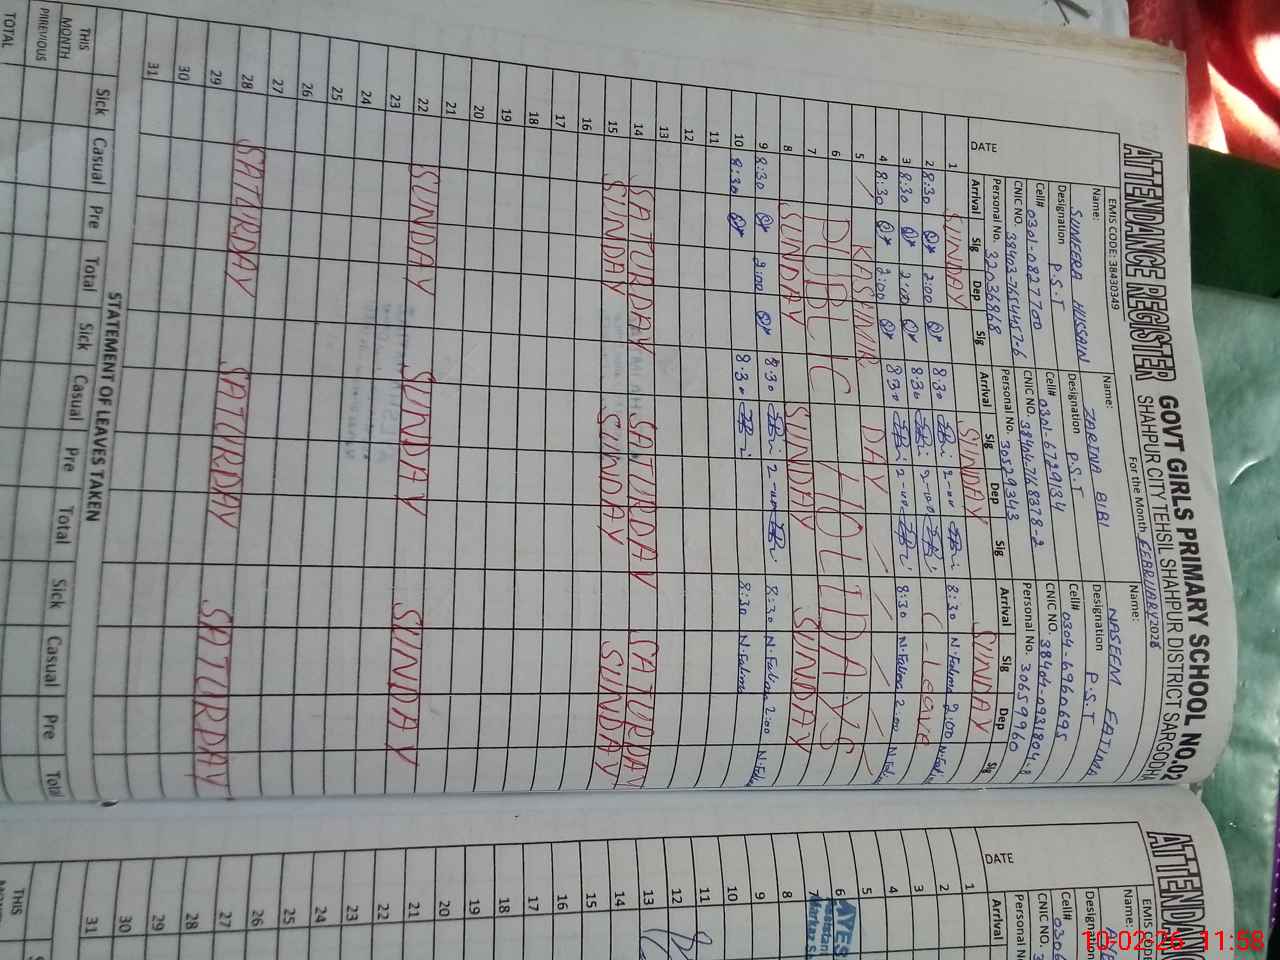 EMIS CODE: 38430349
ATTENDANCE REGISTER GOVT GIRLS PRIMARY SCHOOL NO.02
SHAHPUR CITY TEHSIL SHAHPUR DISTRICT SARGODHA
For the Month FEBRUARY 2026
Name: SUMERA HUSSAIN Name: ZARINA BIBI Name: NASEEM FATIMA
Designation P.S.T Designation P.S.T Designation P.S.T
Cell# 0301-0827700 Cell# 0301-6729134 Cell# 0304-6960695
CNIC NO. 38403-7654457-6 CNIC NO. 38404-7168378-2 CNIC NO. 38404-0931804-8
Personal No. 32036868 Personal No. 30529343 Personal No. 30659960
DATE Arrival Sig Dep Sig Arrival Sig Dep Sig Arrival Sig Dep Sig
1 SUNDAY SUNDAY SUNDAY
2 8:30 2:00 8:30 2-00 8:30 N.Fatima 2:00 N.Fatima
3 8:30 2:00 8:30 2-00 C-Leave
4 8:30 2:00 8:30 2-00 8:30 N.Fatima 2:00 N.Fatima
5 KASHMIR DAY
6 PUBLIC HOLIDAYS
7
8 SUNDAY SUNDAY SUNDAY
9 8:30 2:00 8:30 2-00 8:30 N.Fatima 2:00 N.Fatima
10 8:30 8:30 8:30 N.Fatima
11
12
13
14 SATURDAY SATURDAY SATURDAY
15 SUNDAY SUNDAY SUNDAY
16
17
18
19
20
21
22 SUNDAY SUNDAY SUNDAY
23
24
25
26
27
28 SATURDAY SATURDAY SATURDAY
29
30
31
STATEMENT OF LEAVES TAKEN
Sick Casual Pre Total Sick Casual Pre Total Sick Casual Pre Total
THIS MONTH
PIREVIOUS
TOTAL
ATTENDANC
EMIS CODE
Name:
Designation
Cell# 0306
CNIC NO.
Personal N
DATE Arrival
1
2
3
4
5
6
7
8
9
10
11
12
13
14
15
16
17
18
19
20
21
22
23
24
25
26
27
28
29
30
31
THIS
10-02-26 11:58